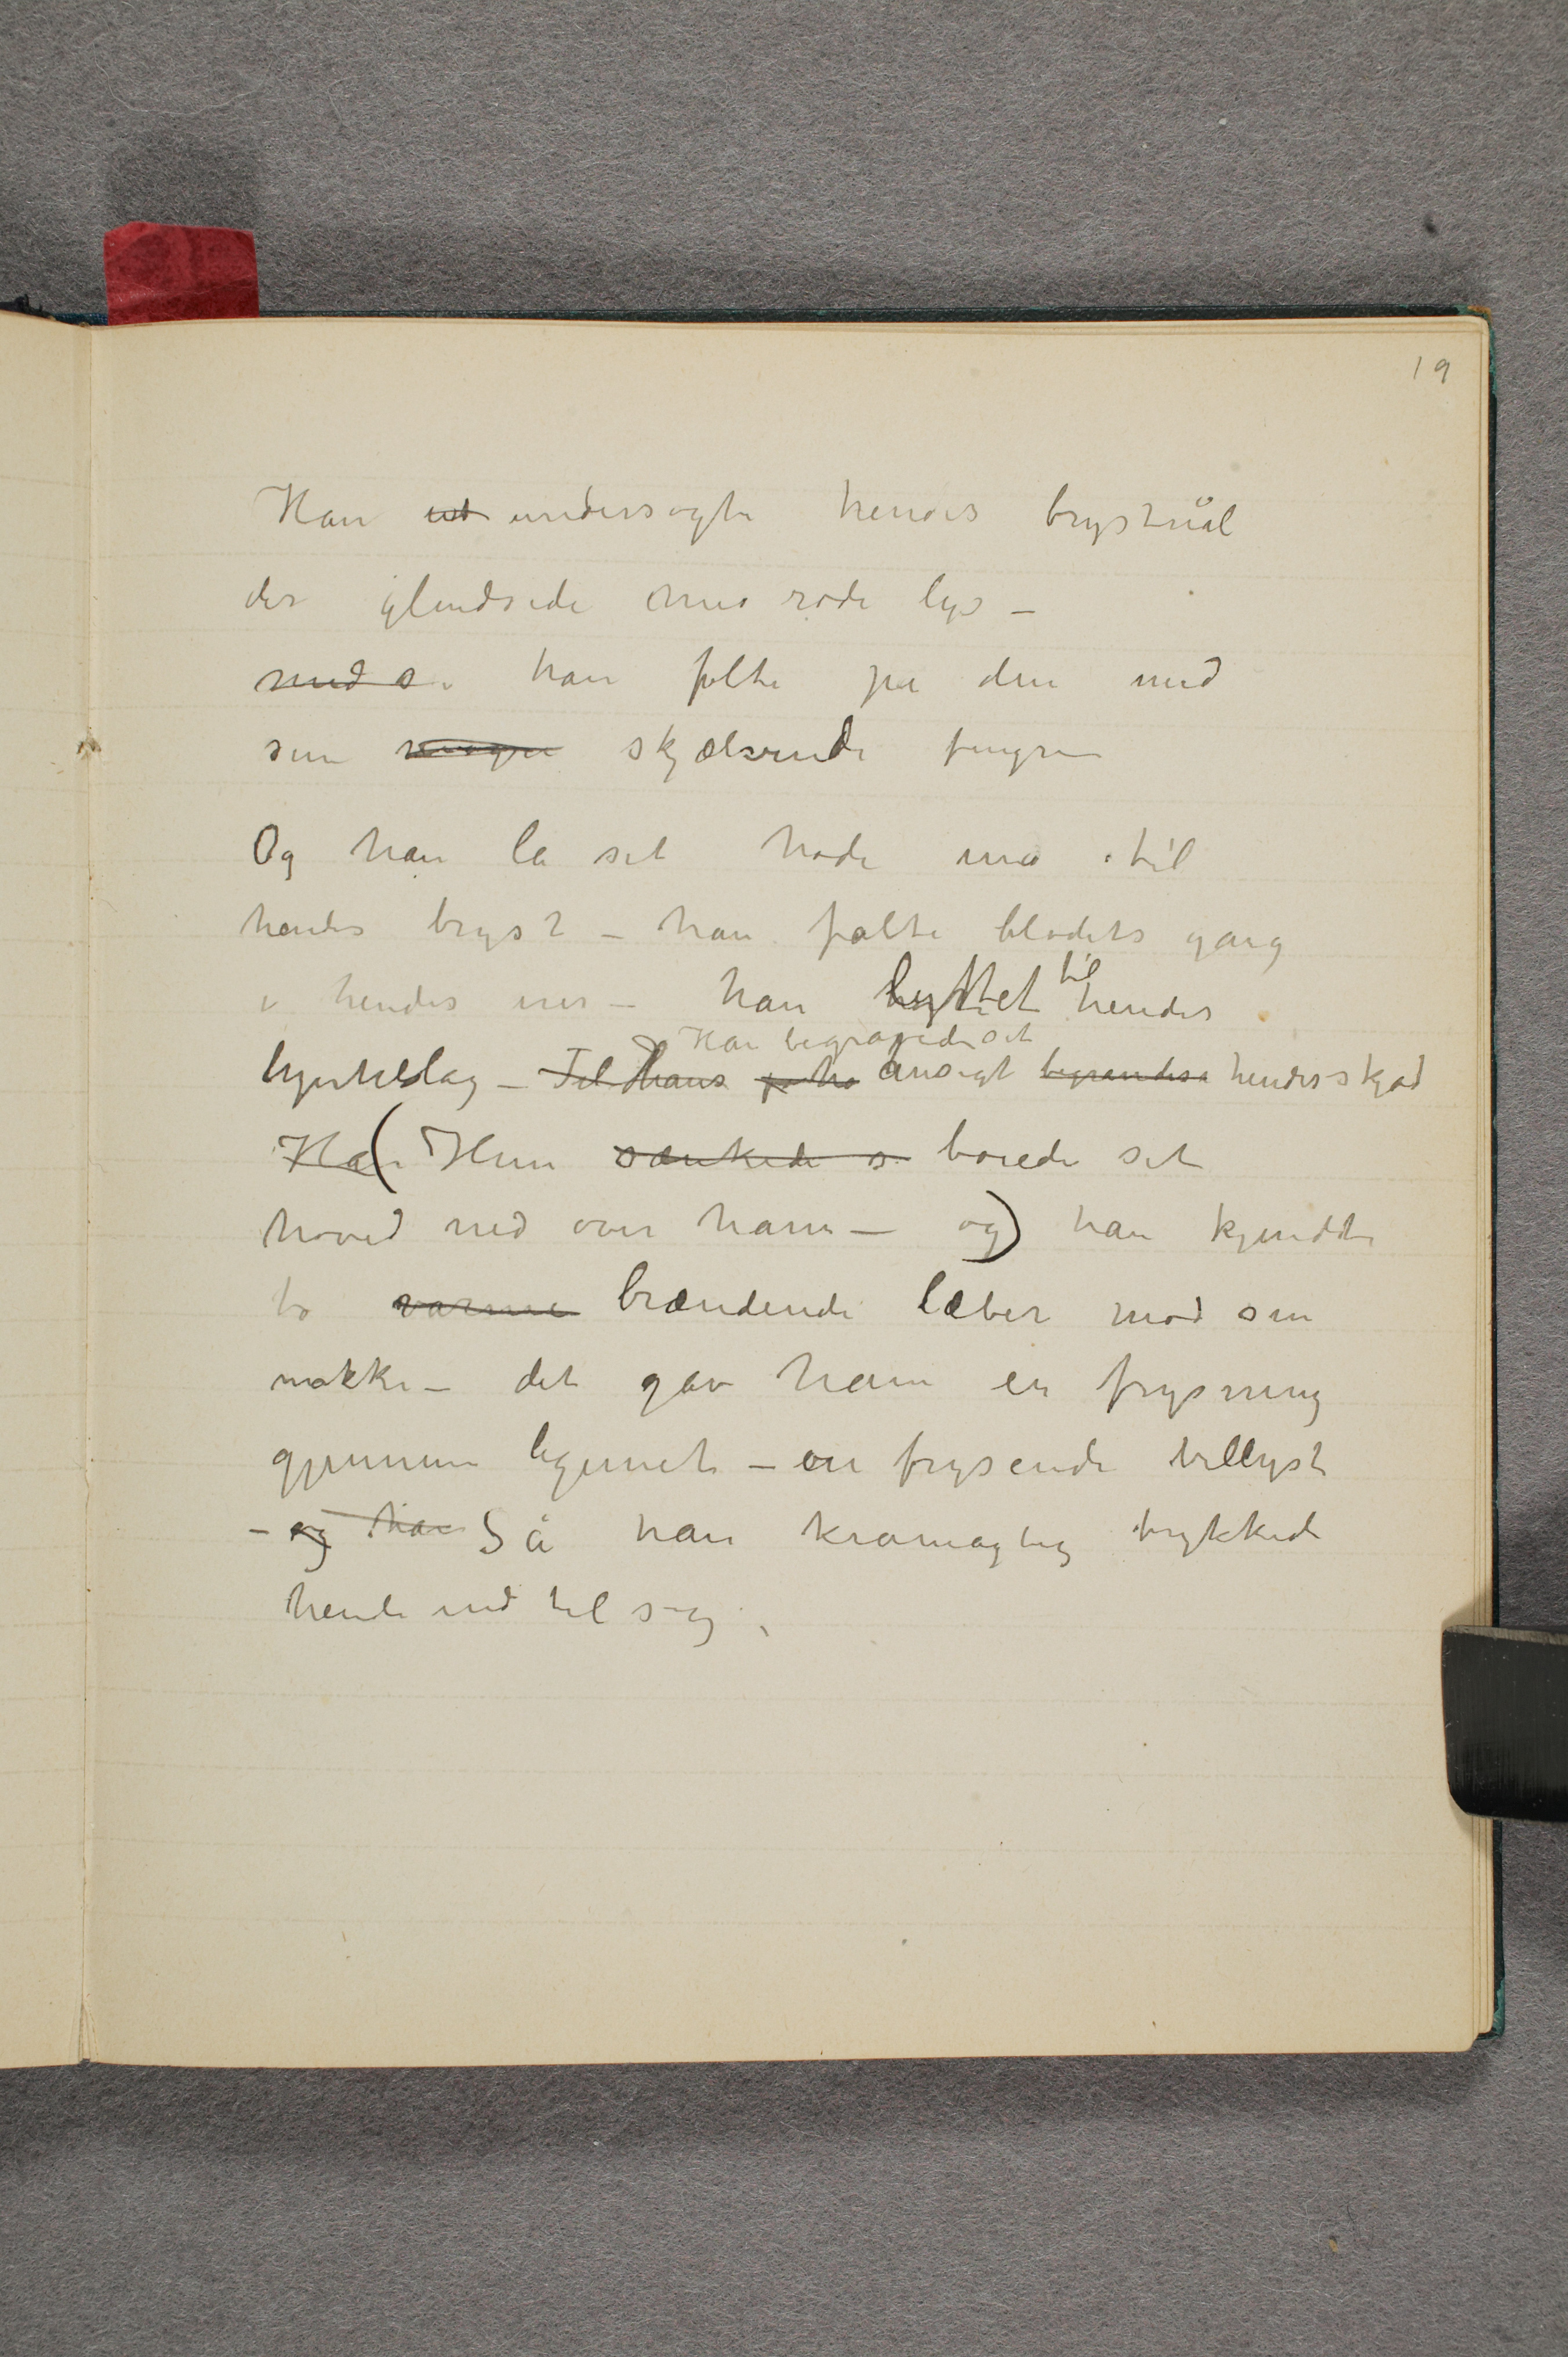 19
Han ud undersøgte hendes brystnål
der glindsede med røde lys –
med s. han følte på den med
sin skjælvende fingre
Og han la sit hode ind til
hendes bryst – han følte blodets gang
i hendes årer – han lyttet til hendes
Han begravede sit
hjerteslag – hans ansigt hendes skjød
Han ( Hun sænkede s. boiede sit
hoved ned over ham – og ) han kjendte
to varme brændende læber mod sin
nakke – det gav ham en frysning
gjennem legemet – en frysende vellyst
– og han Så han krampagtig trykkede
hende ind til sig.